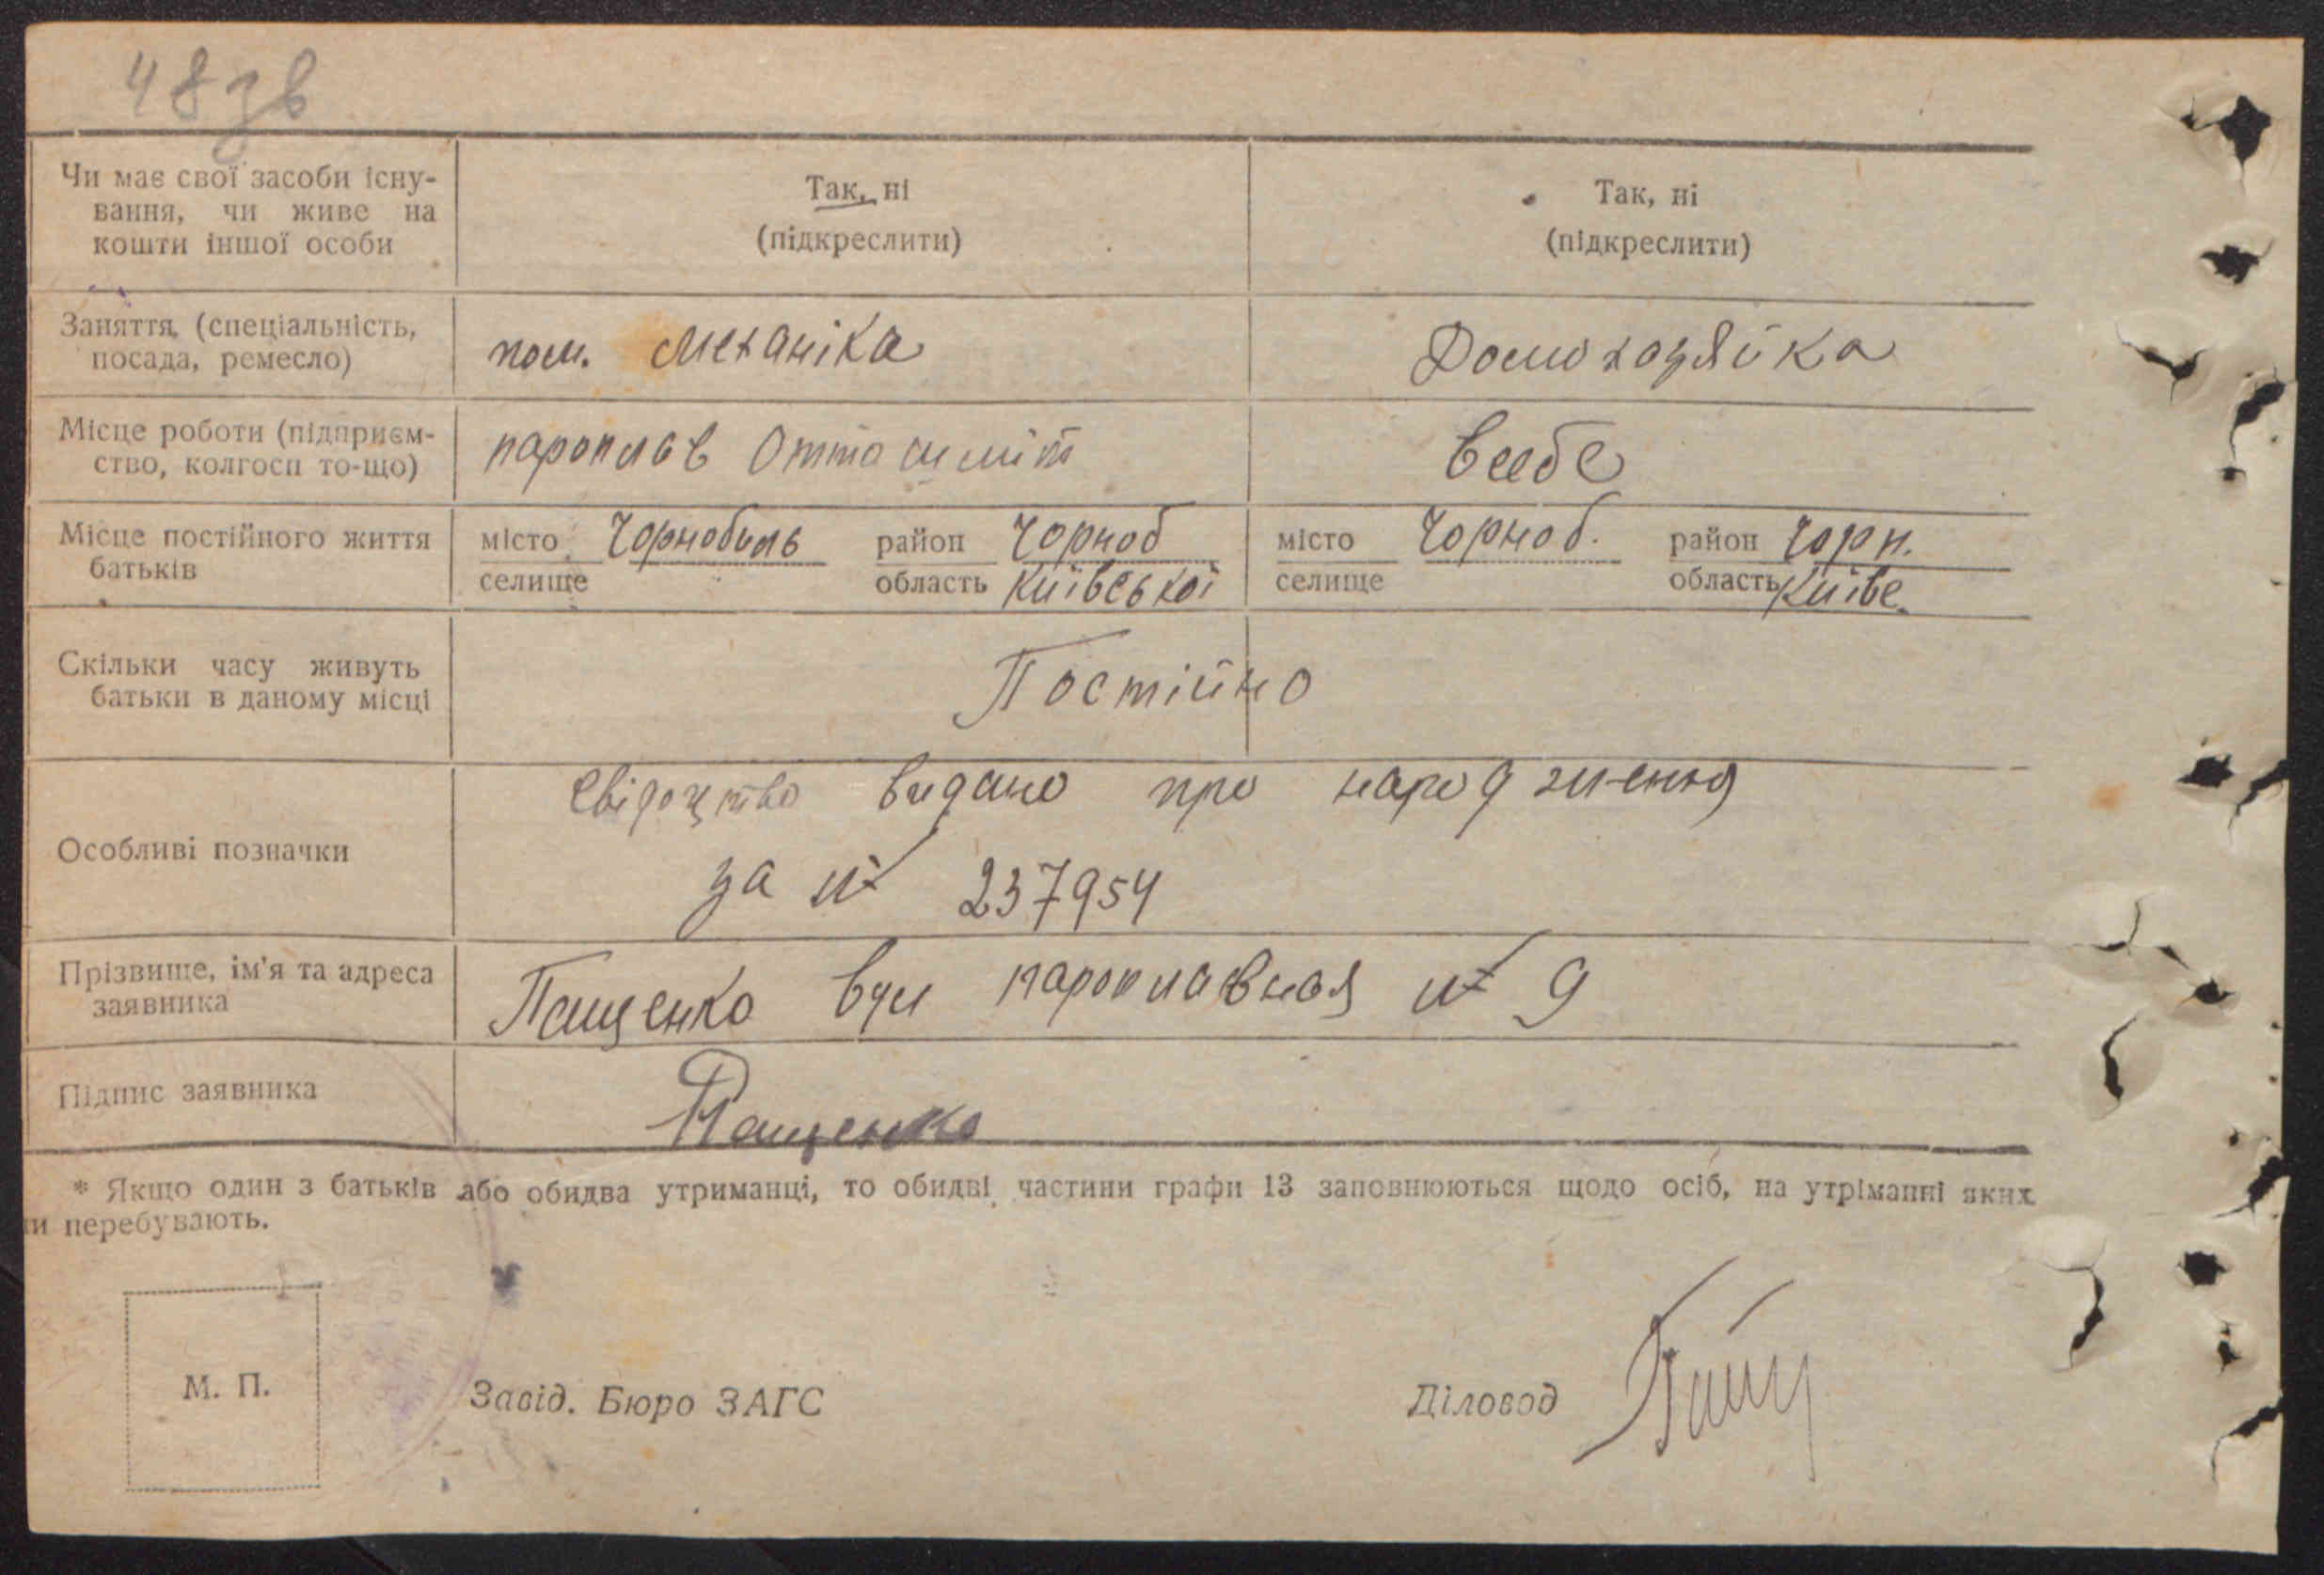 48 зв
Чи має свої засоби існу-
вання, чи живе на
кошти іншої особи
Так, ні
(підкреслити)
Так, ні
(підкреслити)
Заняття (спеціальність,
посада, ремесло)
пом. механіка
Домохозяйка
Місце роботи (підприєм-
ство, колгосп то-що)
пароплав Отто Шміт
вдома
Місце постійного життя
батьків
місто Чорнобиль район Чорноб
селище область Київської
місто Чорноб. район Чорн.
селище область Київс.
Скільки часу живуть
батьки в даному місці
Постійно
Особливі позначки
свідоцтво видано про народження
за № 237954
Прізвище, ім'я та адреса
заявника
Пащенко вул пароплавная № 9
Підпис заявника
Пащенко
* Якщо один з батьків або обидва утриманці, то обидві частини графи 13 заповнюються щодо осіб, на утріманні яких
ни перебувають.
М. П.
Завід. Бюро ЗАГС
Діловод